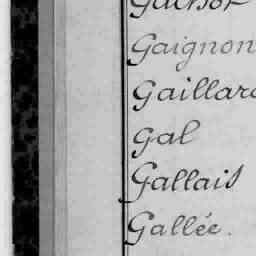 Gaignon
Gaillard
Gal
Gallais
Gallée.